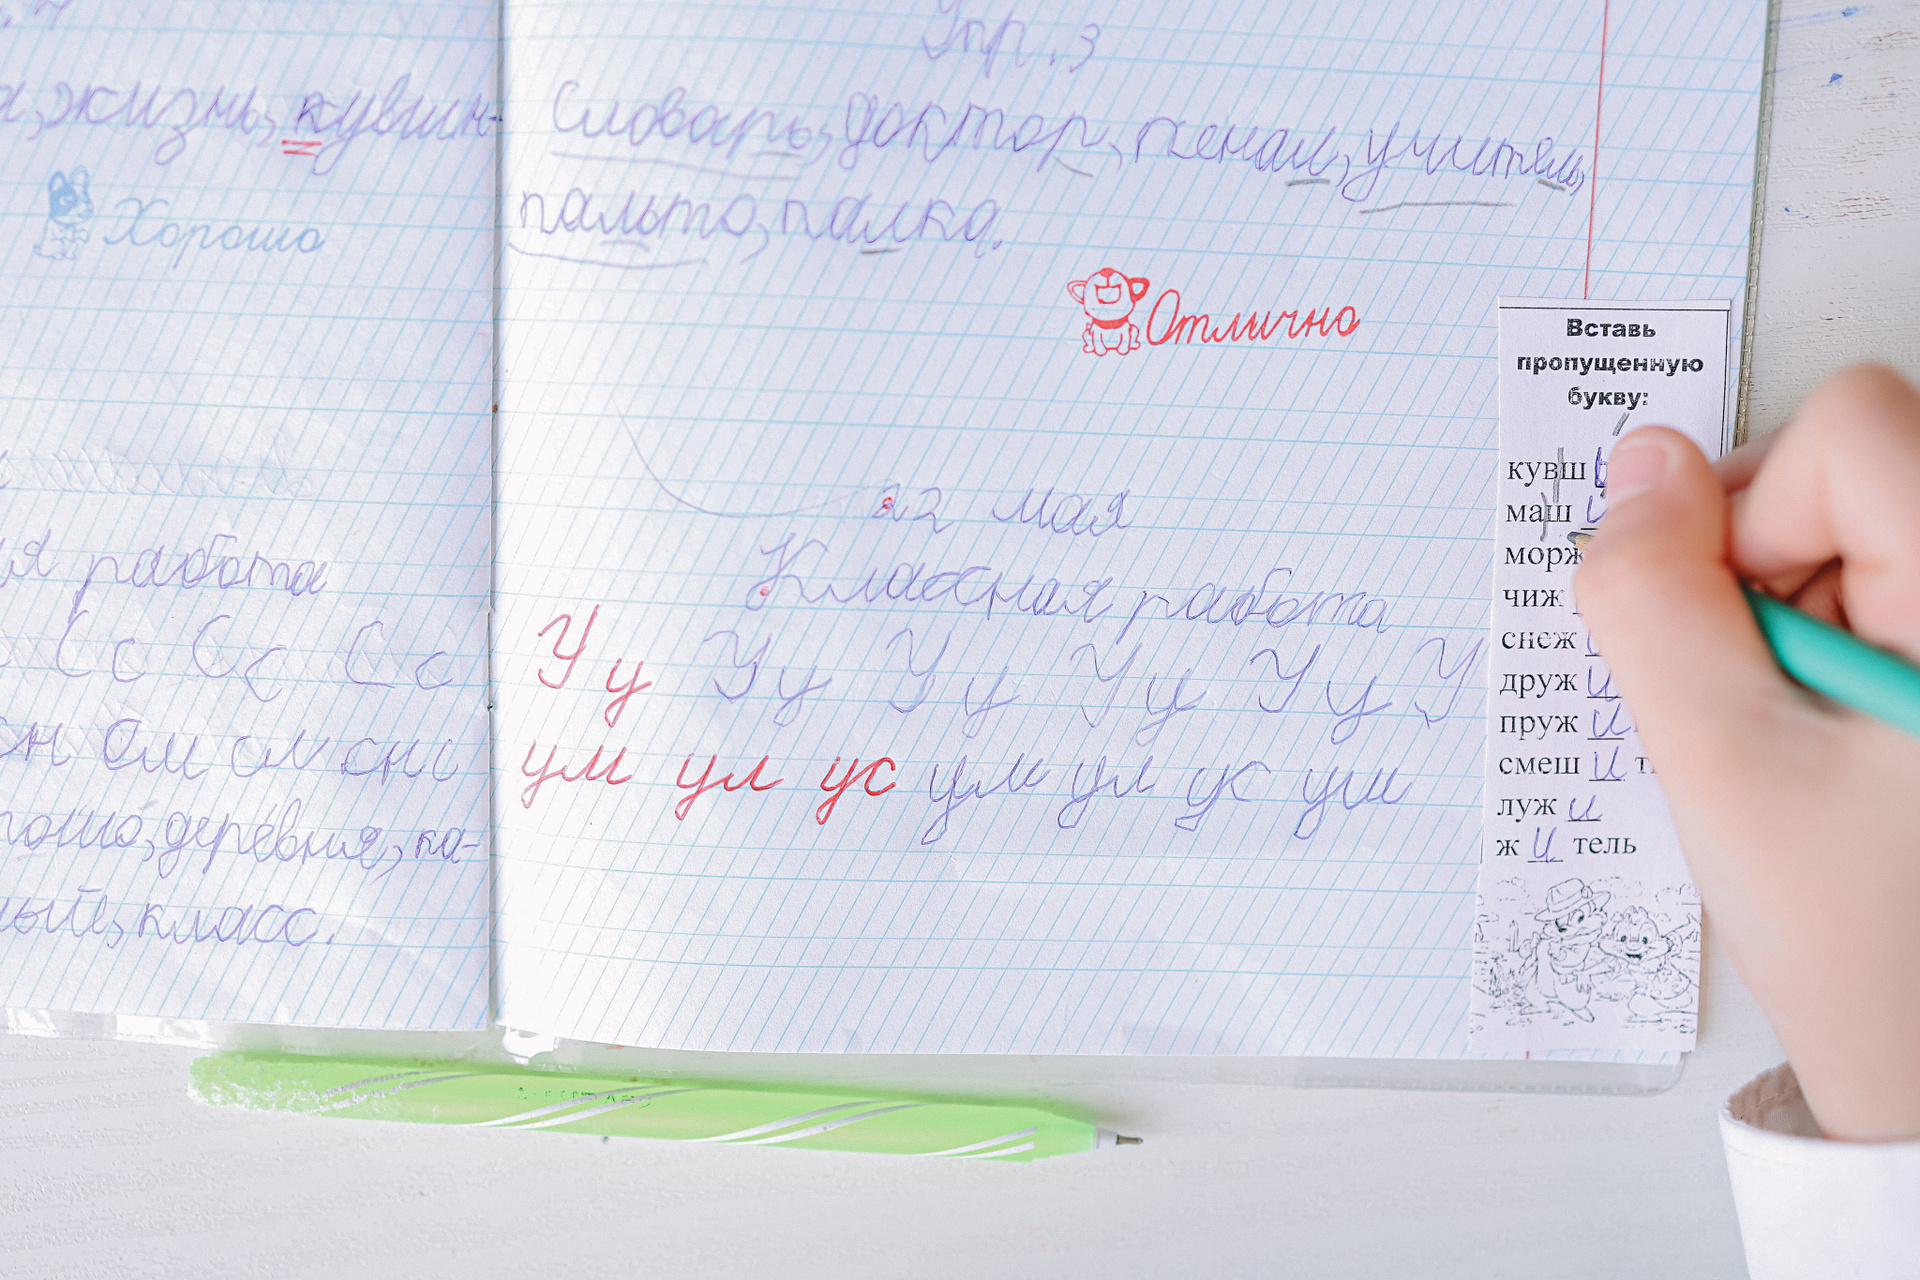 жизнь, кувшин-
Хорошо
я работа
Сс Сс Сс
ом см сн
деревня, ка-
класс.
Упр. 3
Словарь, доктор, пенал, учитель,
пальто, палка.
Отлично
22 мая
Классная работа
У у У у У у У у У у У
ум ул ус ум ул ус уш
Вставь
пропущенную
букву:
кувш
маш и
морж
чиж
снеж
друж и
пруж и
смеш и т
луж и
ж и тель